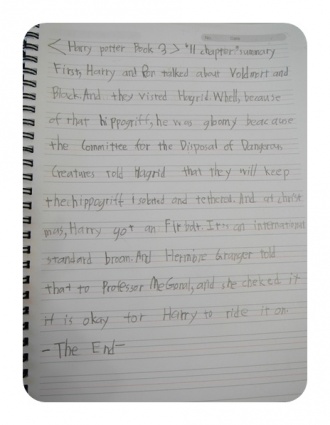 <Harry potter Book 3> "11 chapter" summary
First, Harry and Ron talked about Voldmort and
Black. And they visted Hagrid. Whell, because
of that hippogriff, he was gloomy bearcause
the Committee for the Disposal of Dangerous
Creatures told Hagrid that they will keep
the hippogriff Isolated and tethered. And at christ
mas, Harry got an Firbolt. It's an international
standard broom. And Hermione Granger told
that to Professor McGonal, and she cheked it
it is okay for Harry to ride it on.
-The End-